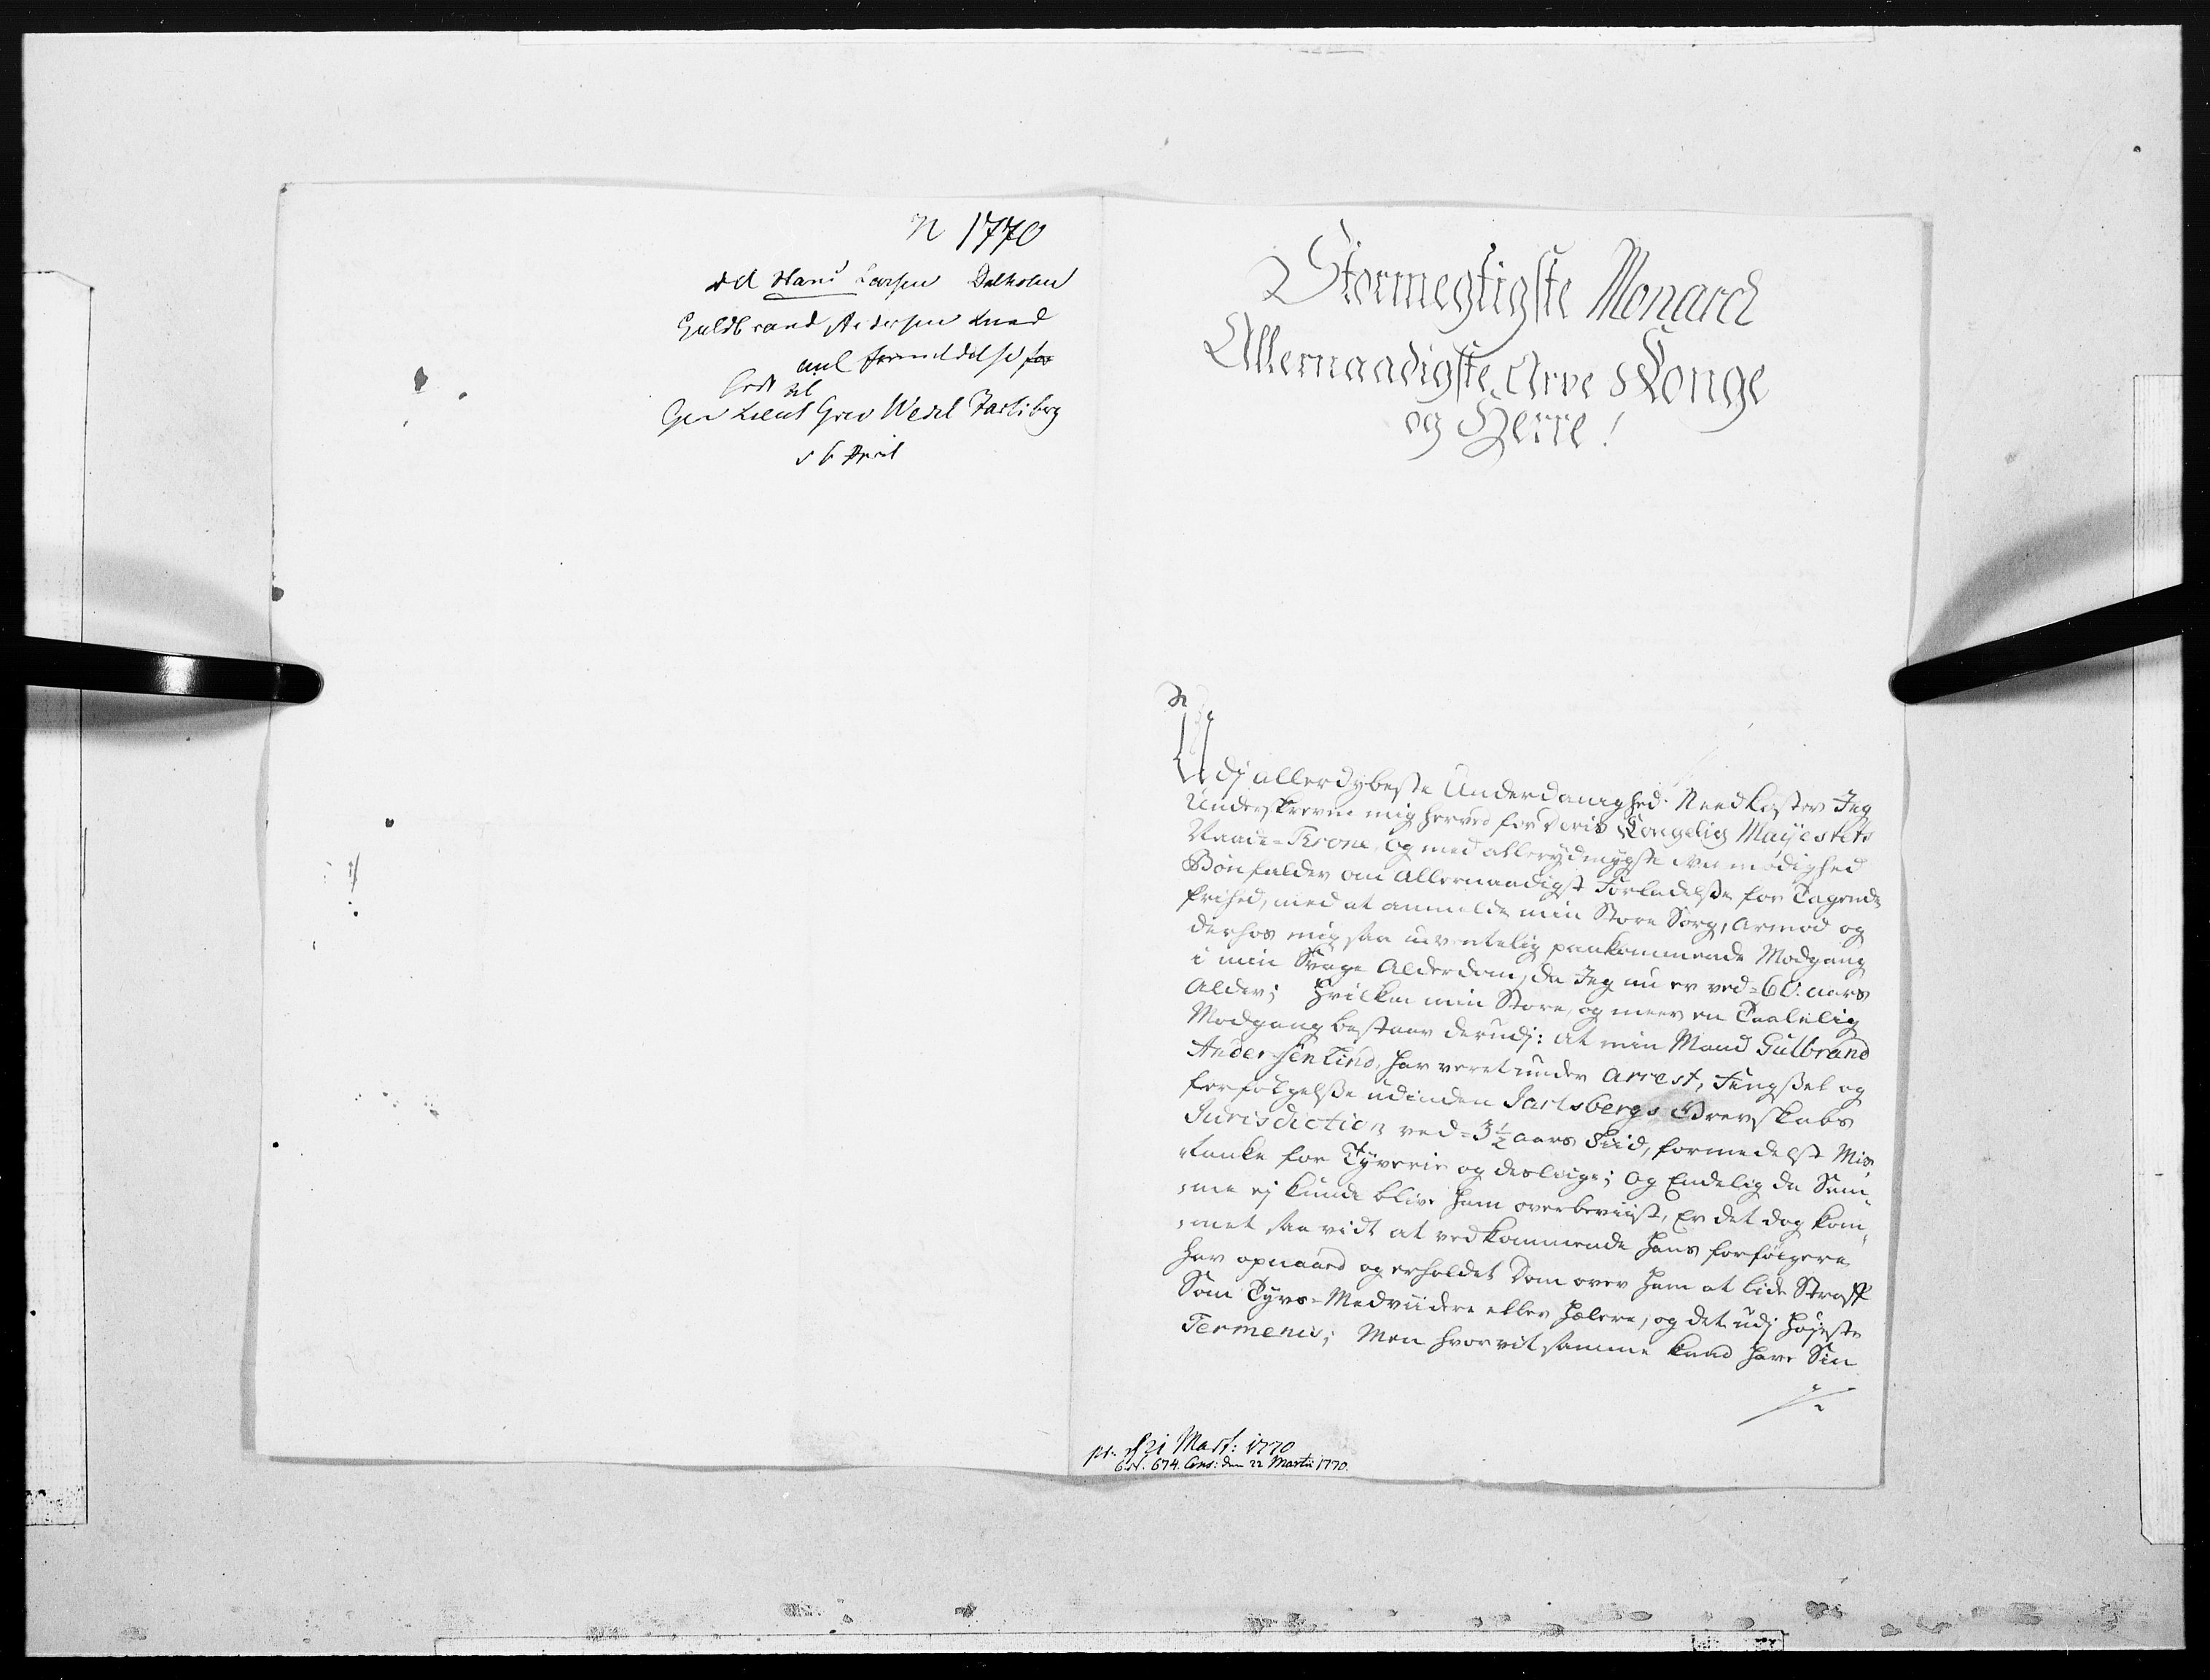 N 1770
Hans Larsen Dalholm
Guldbrand Andersen Lund
anl formildelse for
brev til
Gen Lieut Grev Wedel Jarlsberg
d 6 April
Stormegtigste Monarch
Allernaadigste Arve Konge
og Herre!
Udj allerdybeste Underdanighed Needkaster Jeg
Underskrevne mig herved for Deris Kongelig Mayestets
Naade-Trone, og med allerydmygste Vemodighed
Bønfalder om Allernaadigst Forladelse for Tagende
frihed, med at anmelde min Store Sorg, Armod og
derhos mig saa uventelig paakommende Modgang
i min Svage Alderdom, da Jeg nu er ved=60. aars
Alder; Hvilken min Store, og meer en Taalelig
Modgang bestaar derudj: at min Mand Gulbrand
Andersen Lind, har veret under Arrest, Fengsel og
forfølgelse udinden Jarlsbergs Grevskabs
Jurisdiction ved=3½ aars Tiid, formedelst Mis
tanke for Tyverie og deslige; Og Endelig da Sam-
me ej kunde blive ham overbeviist, Er det dog kom-
met saa vidt at vedkommende hans forfølgere
har opnaaed og erholdet Dom over ham at lide Straff
Som Tyvs-Medviidere eller Hælere, og det udj høyeste
Termenis; Men hvorvit samme kand have Sin
pr. d 21 Mart: 1770
674. den 22 Martii 1770.